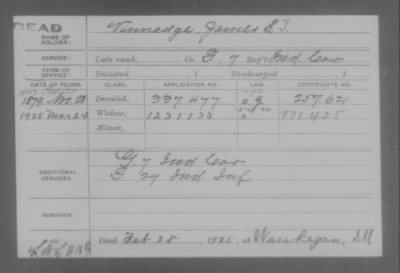 DEAD
NAME OF SOLDIER: Vinnedge, James S. T.
SERVICE: Late rank, Co. F, 7 Reg't Ind Cav
TERM OF SERVICE: Enlisted , 1 Discharged , 1
DATE OF FILING. CLASS. APPLICATION NO. LAW. CERTIFICATE NO.
1879 Nov 28 Invalid, 337477 257621
1925 Mar 24 Widow, 1231133 971425
Minor,
ADDITIONAL SERVICES: G. 7 Ind Cav
F 29 Ind Inf
REMARKS:
Died Feb 28, 1925, at Waukegan, Ill